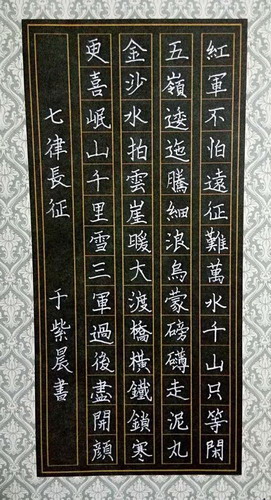 紅軍不怕遠征難萬水千山只等閑
五嶺逶迤騰細浪烏蒙磅礴走泥丸
金沙水拍雲崖暖大渡橋橫鐵鎖寒
更喜岷山千里雪三軍過後盡開顏
七律長征 于紫晨書